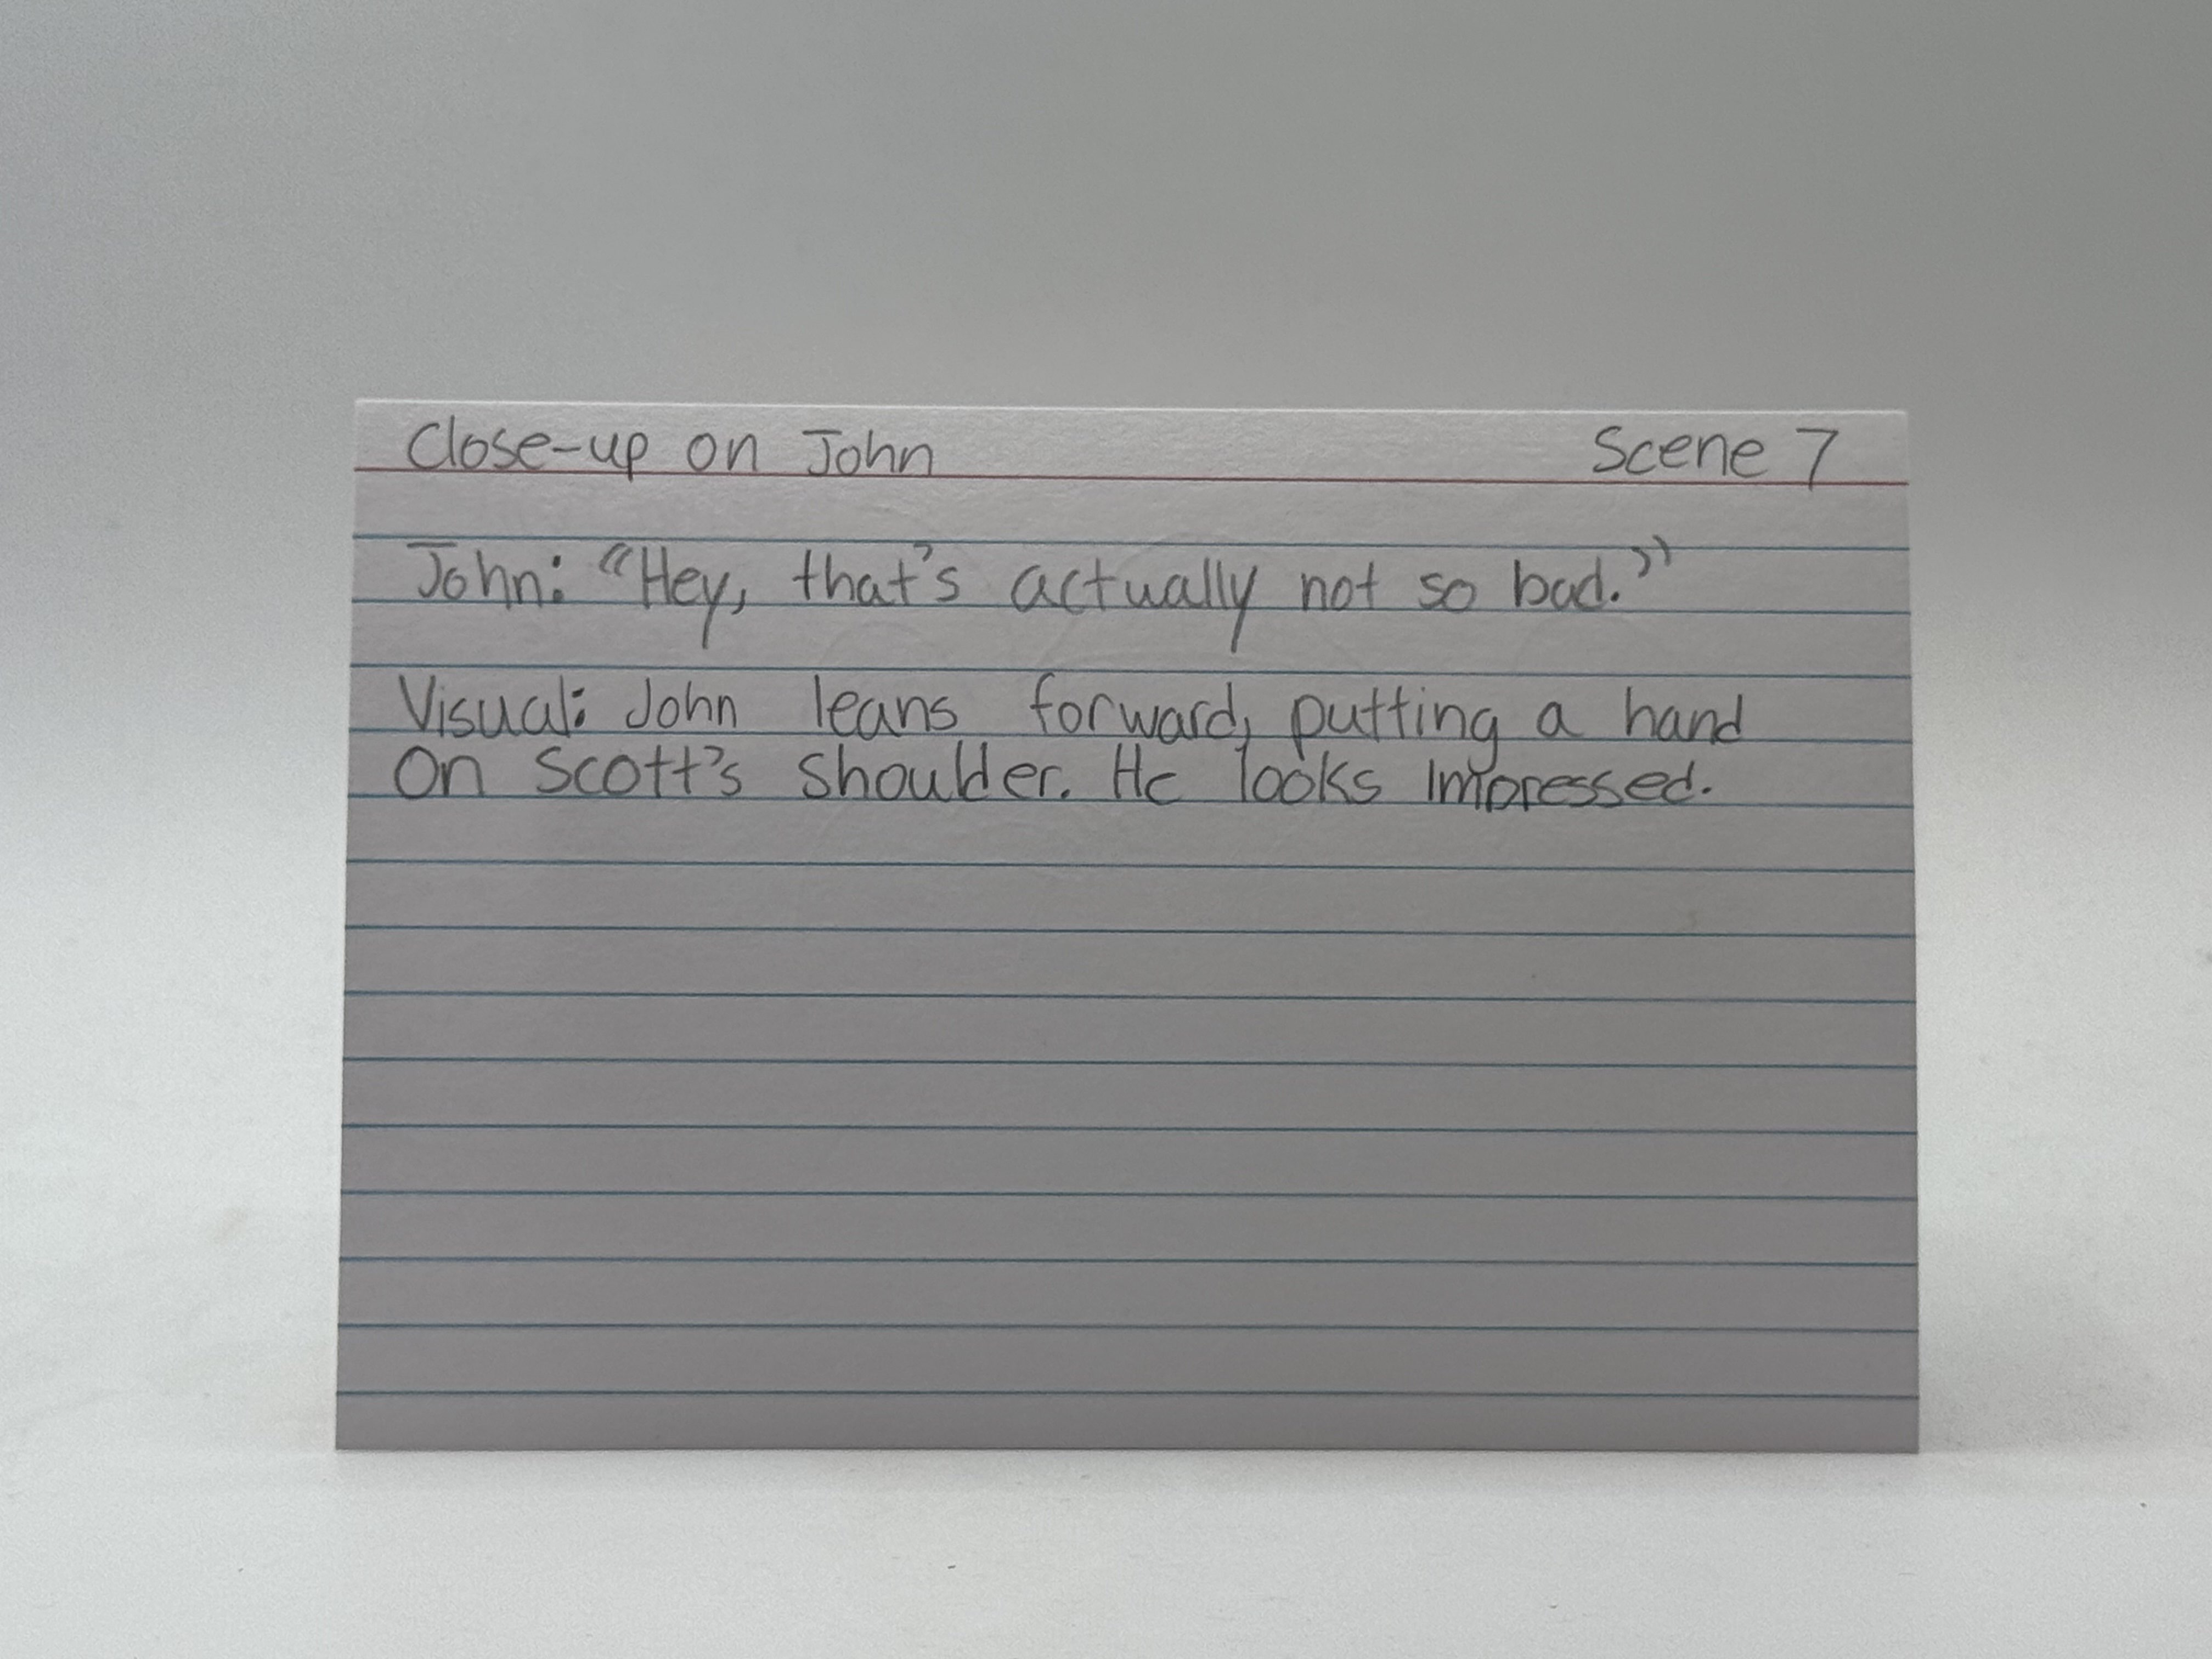 Close-up on John Scene 7
John: “Hey, that's actually not so bad.”
Visual: John leans forward, putting a hand
on Scott's shoulder. He looks impressed.